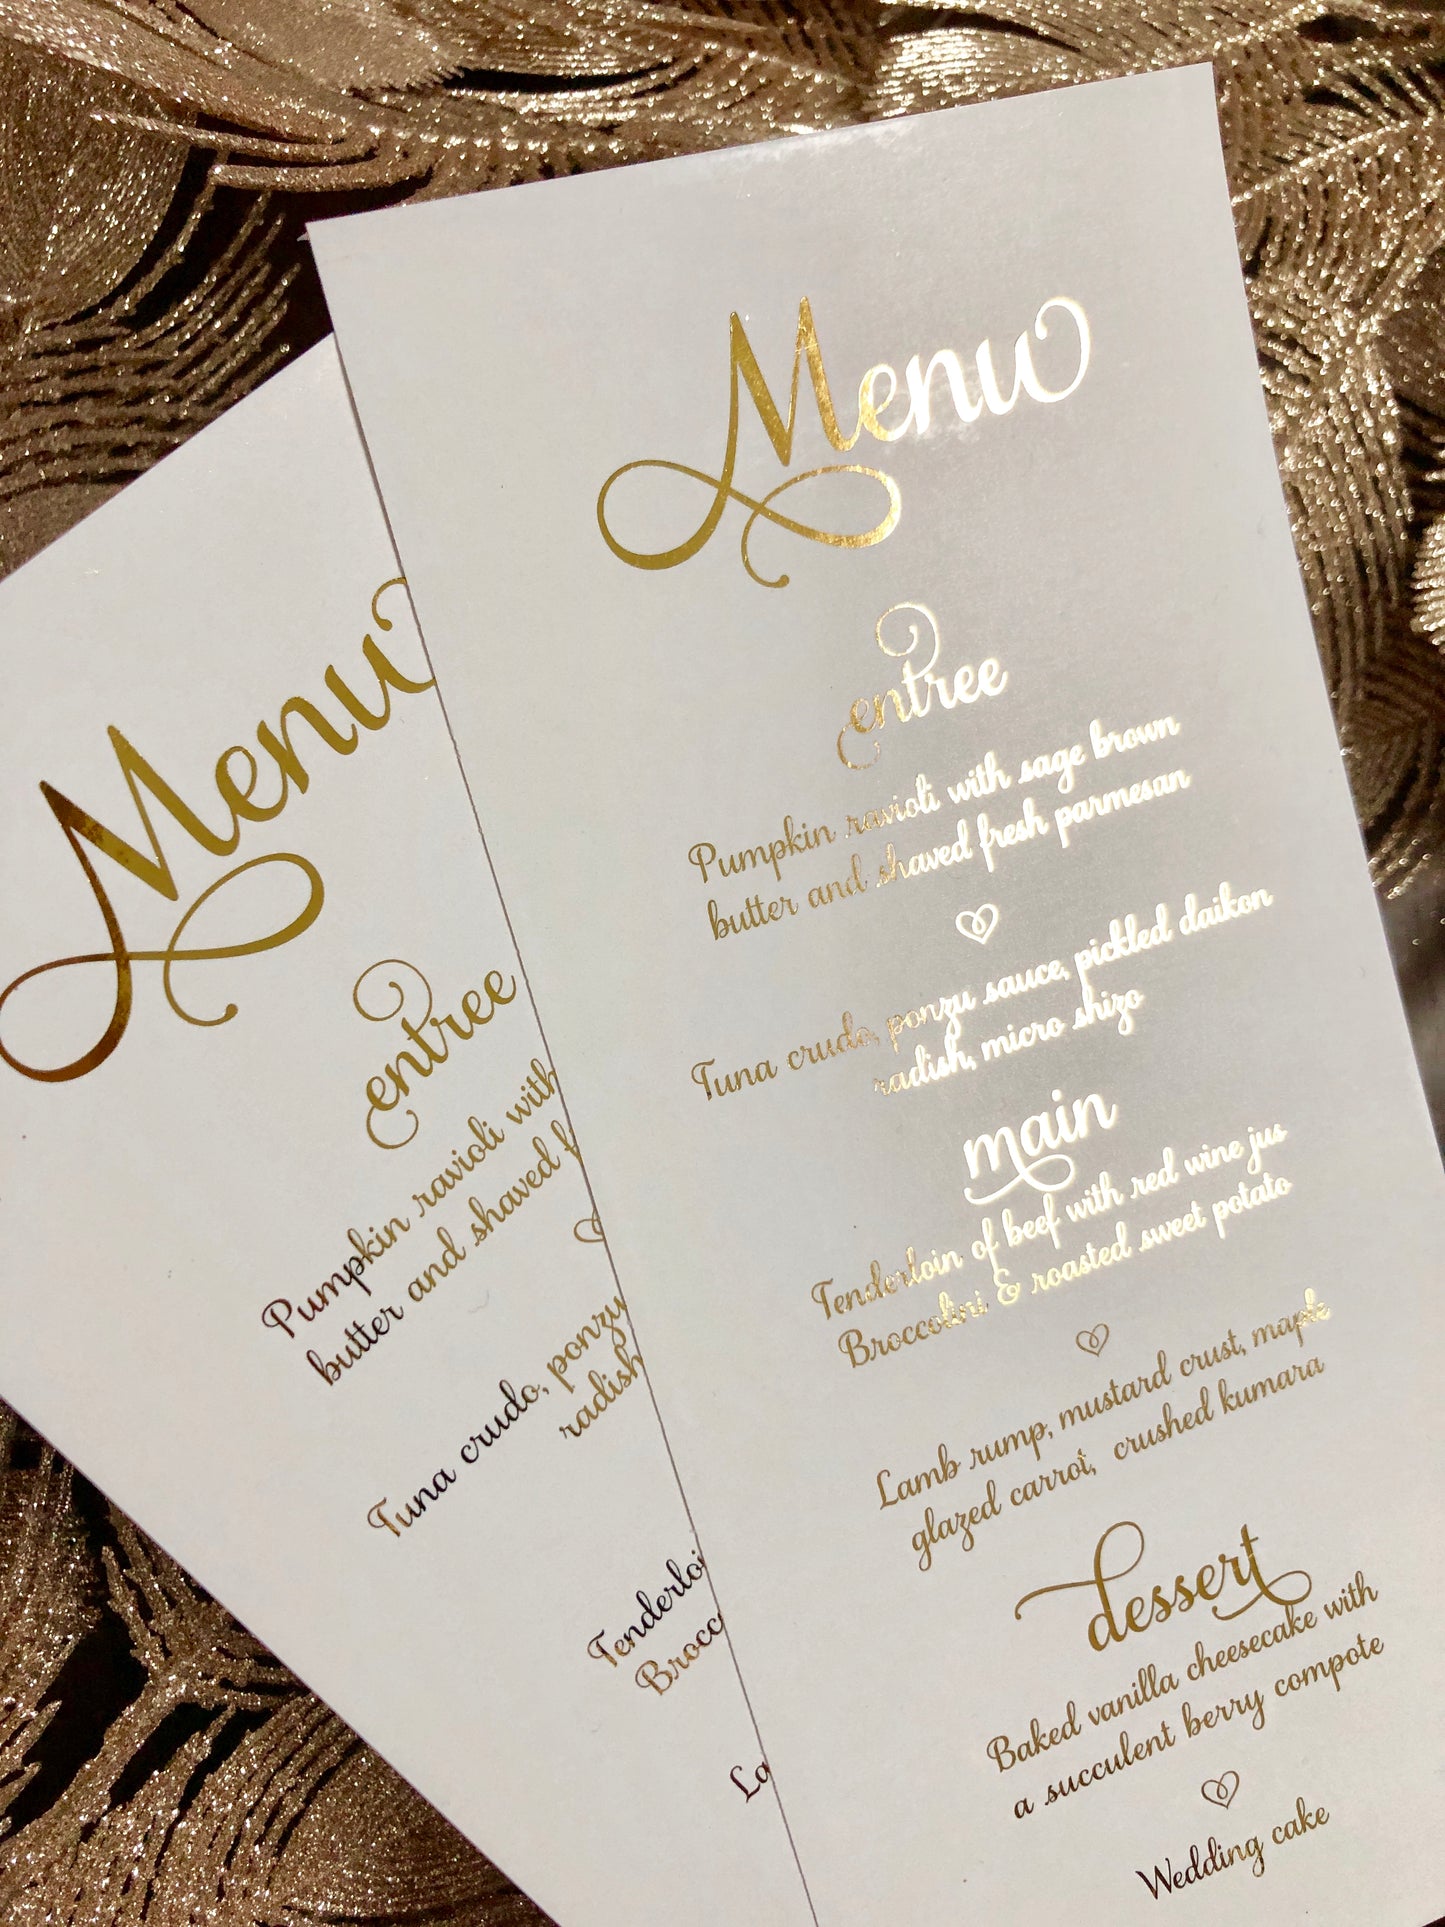 Menu
entree
Pumpkin ravioli with sage brown
butter and shaved fresh parmesan
Tuna crudo, ponzu sauce, pickled daikon
radish, micro shizo
main
Tenderloin of beef with red wine jus
Broccolini & roasted sweet potato
Lamb rump, mustard crust, maple
glazed carrot, crushed kumara
dessert
Baked vanilla cheesecake with
a succulent berry compote
Wedding cake
Menu
entree
Pumpkin ravioli with
butter and shaved f
Tuna crudo, ponzu
radish
Tenderloi
Brocc
La